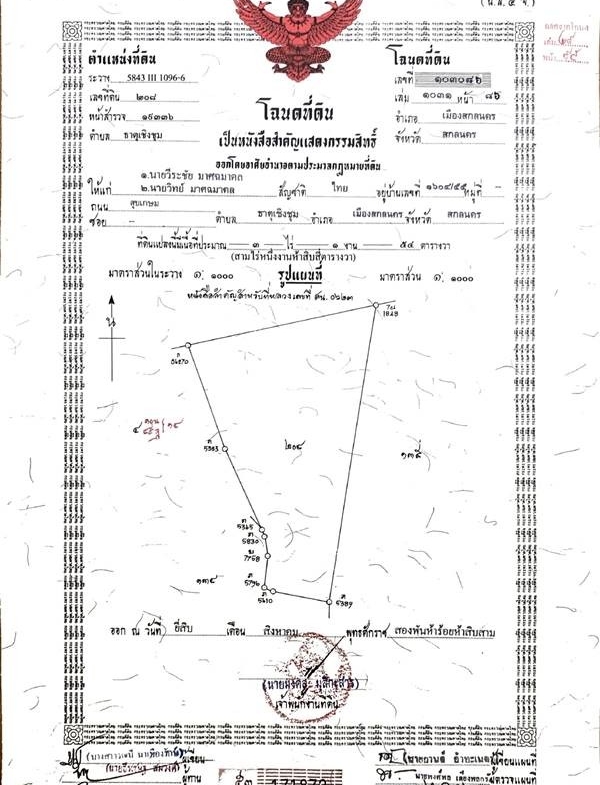 (น.ส.๔ จ.)
ตำแหน่งที่ดิน
โฉนดที่ดิน
ระวาง 5843 III 1096-6
เลขที่ ๑๐๓๐๔๖
เลขที่ดิน ๒๐๘
เล่ม ๑๐๓๑ หน้า ๔๖
หน้าสำรวจ ๑๙๓๓๖
อำเภอ เมืองสกลนคร
ตำบล ธาตุเชิงชุม
จังหวัด สกลนคร
โฉนดที่ดิน
เป็นหนังสือสำคัญแสดงกรรมสิทธิ์
ออกโดยอาศัยอำนาจตามประมวลกฎหมายที่ดิน
๑.นายวีระชัย มาศฉมาดล
ให้แก่ ๒.นายวิทย์ มาศฉมาดล สัญชาติ ไทย อยู่บ้านเลขที่ ๑๖๐๔/๕๕ หมู่ที่ –
ถนน สุขเกษม
ซอย – ตำบล ธาตุเชิงชุม อำเภอ เมืองสกลนคร จังหวัด สกลนคร
ที่ดินแปลงนี้มีเนื้อที่ประมาณ ๓ ไร่ ๑ งาน ๕๔ ตารางวา
(สามไร่หนึ่งงานห้าสิบสี่ตารางวา)
มาตราส่วนในระวาง ๑: ๑๐๐๐ รูปแผนที่ มาตราส่วน ๑: ๑๐๐๐
น
๒๐๘
5363
5365
5830
7758
5796
5810
5389
๑๓๕
ออก ณ วันที่ ยี่สิบ เดือน สิงหาคม พุทธศักราช สองพันห้าร้อยห้าสิบสาม
เจ้าพนักงานที่ดิน
ผู้เขียน
ผู้เขียนแผนที่
ผู้ทาน
ผู้ตรวจแผนที่